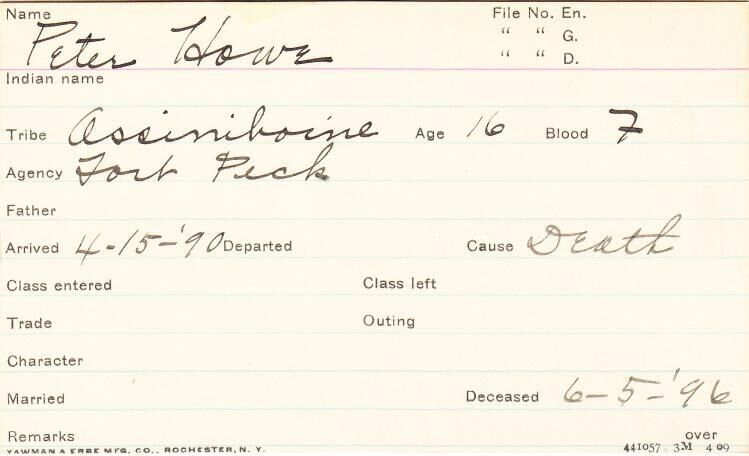 Name Peter Howe File No. En.
" " G.
" " D.
Indian name
Tribe Assiniboine Age 16 Blood F
Agency Fort Peck
Father
Arrived 4-15-'90 Departed Cause Death
Class entered Class left
Trade Outing
Character
Married Deceased 6-5-'96
Remarks over
YAWMAN & ERBE MFG. CO., ROCHESTER, N. Y. 441057 3M 4 09